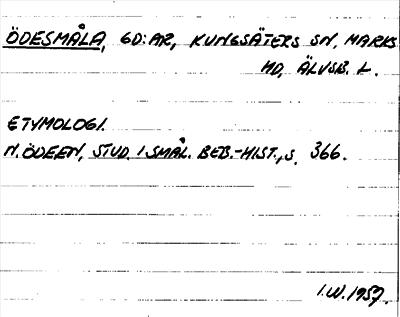 ÖDESMÅLA, GD:AR, KUNGSÄTERS SN, MARKS
HD, ÄLVSB. L.
ETYMOLOGI.
N. ÖDEEN, STUD. I SMÅL. BEB.-HIST., S. 366.
I.W. 1957.